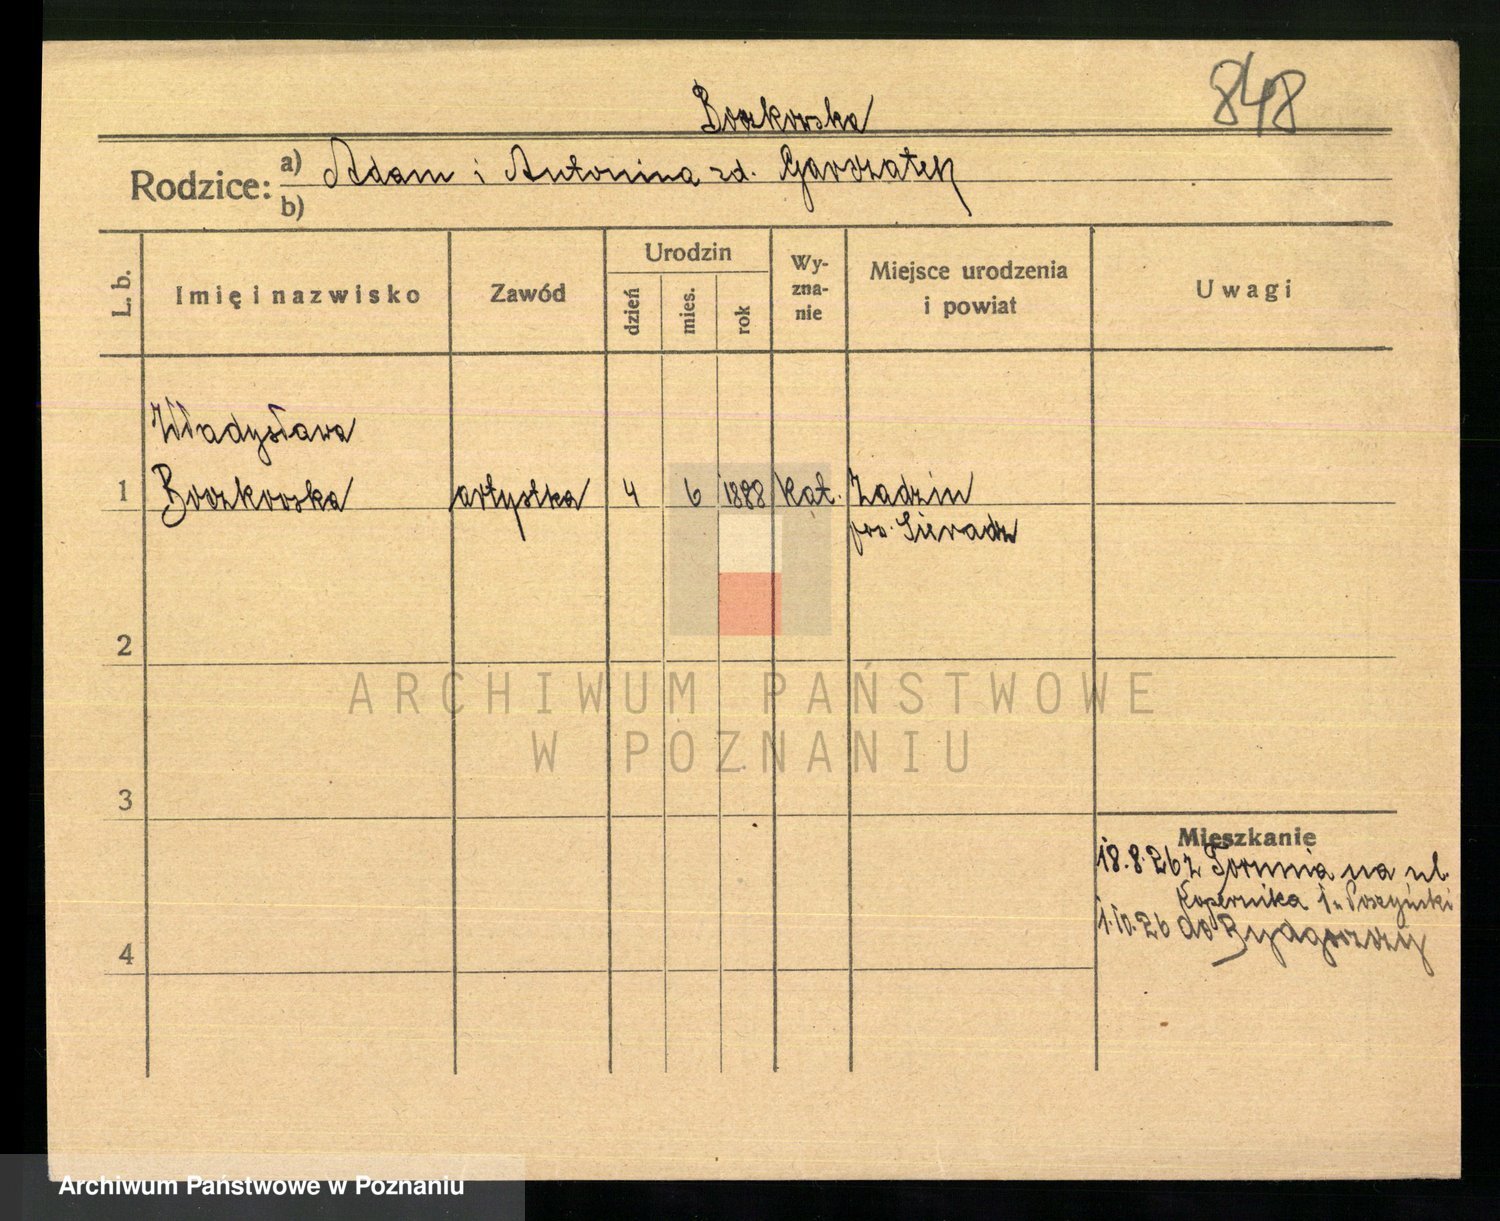 848
Boczkowska
Rodzice: a) Adam i Antonina zd. Garczatek
b)
L. b.
Imię i nazwisko
Zawód
Urodzin
dzień
mies.
rok
Wy-
zna-
nie
Miejsce urodzenia
i powiat
Uwagi
Władysława
1 Boczkowska artystka 4 6 1888 kat. Zadzin
pow. Sieradz
2
ARCHIWUM PAŃSTWOWE
W POZNANIU
3
Mieszkanie
18.8.26 z Torunia na ul.
Kopernika
1.10.26 do Bydgoszczy
4
Archiwum Państwowe w Poznaniu